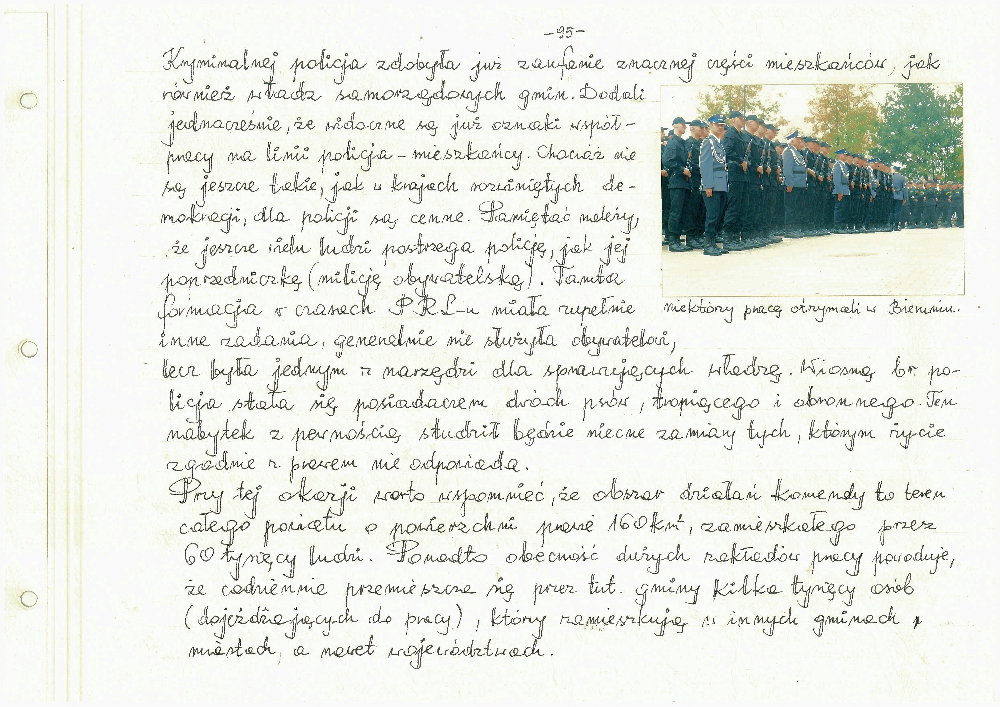 -95-
Kryminalnej policja zdobyła już zaufanie znacznej części mieszkańców, jak
również władz samorządowych gmin. Dodali
jednocześnie, że widoczne są już oznaki współ-
pracy na linii policja - mieszkańcy. Chociaż nie
są jeszcze takie, jak w krajach rozwiniętych de-
mokracji, dla policji są cenne. Pamiętać należy,
że jeszcze wielu ludzi postrzega policję, jak jej
poprzedniczkę (milicję obywatelską). Tamta
formacja w czasach PRL-u miała zupełnie
niektórzy pracę otrzymali w Bieruniu.
inne zadania, generalnie nie służyła obywatelowi,
lecz była jednym z narzędzi dla sprawujących władzę. Wiosną br po-
licja stała się posiadaczem dwóch psów, tropiącego i obronnego. Ten
nabytek z pewnością studził będzie niecne zamiary tych, którym życie
zgodnie z prawem nie odpowiada.
Przy tej okazji warto wspomnieć, że obszar działań komendy to teren
całego powiatu o powierzchni prawie 160 km², zamieszkałego przez
60 tysięcy ludzi. Ponadto obecność dużych zakładów pracy powoduje,
że codziennie przemieszcza się przez tut. gminy kilka tysięcy osób
(dojeżdżających do pracy), którzy zamieszkują w innych gminach,
miastach, a nawet województwach.